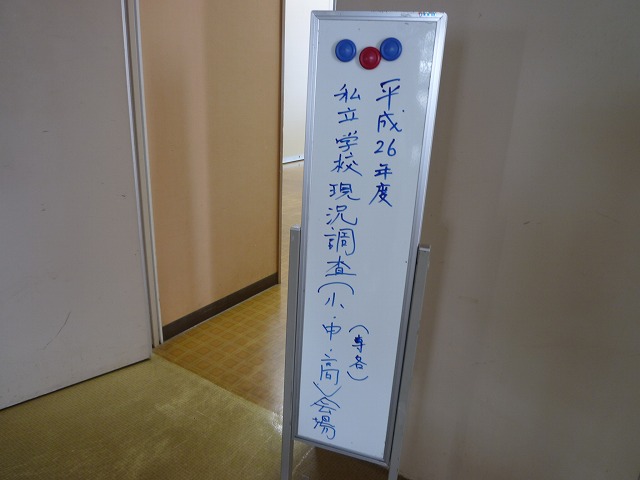 平成26年度
私立学校現況調査(小・中・高)会場
(専各)